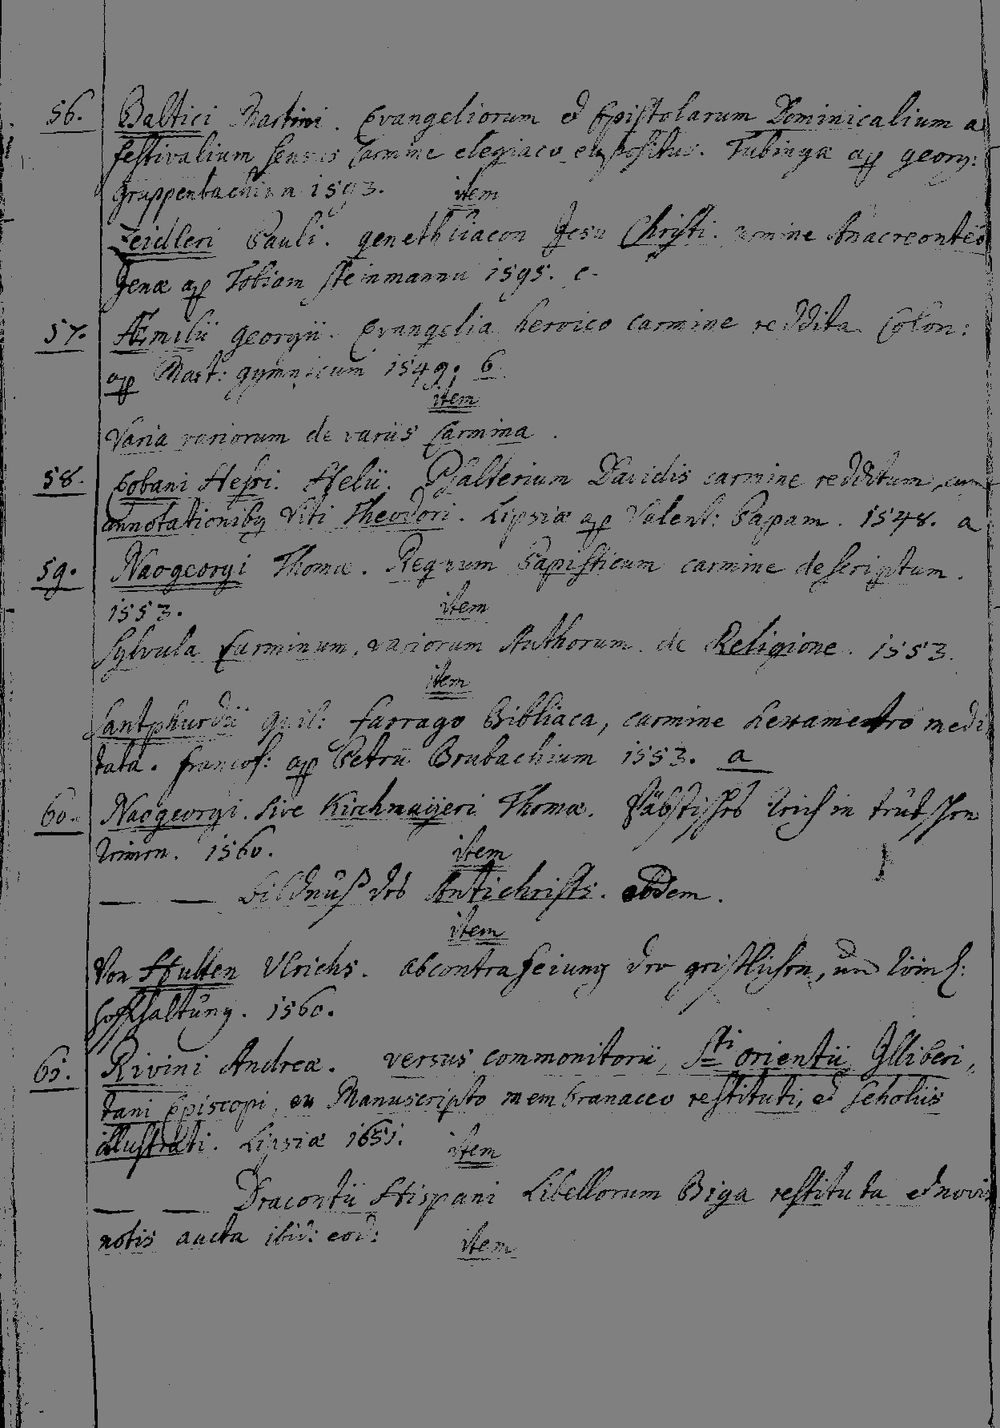 56. Baltici Martini. Evangeliorum et Epistolarum Dominicalium a
festivalium sensus Carmine elegiaco expositus. Tubingæ ap georg:
gruppenbachium 1593. item
Zeidleri Pauli. genethliacon Jesu Christi. carmine Anacreonteo
Jenæ ap Tobiam steinmannu 1595. c.
57. Æmilii georgii. Evangelia heroico carmine reddita Colon:
ap Mart: gymnicum 1549. 6
item
Varia variorum de variis Carmina.
58. Eobani Hessi. Helii. Psalterium Davidis carmine redditum, cum
annotationibq Viti Theodori. Lipsiæ ap Valent: Papam. 1548. a
59. Naogeorgi Thomæ. Regnum Papisticum carmine descriptum.
1553. item
Sylvula Carminum, variorum Authorum de Religione. 1553.
item
Santphurdii guil: farrago Bibliaca, carmine hexametro medi
tata. francof: ap Petrū Brubachium 1553. a
60. Naogeorgi. sive Kirchmaijeri Thomæ. Päbstisches Reich in teütschen
Reimen. 1560. item
— — bildnüß des Antichrists. eodem.
item
Von Hutten Ulrichs. abcontrafeiung der geistlichen, und
hoffhaltung. 1560.
61. Rivini Andreæ. versus commonitorii, Sti orientii Illiberi,
tani Episcopi, ex Manuscripto membranaceo restituti, et scholiis
illustrati. Lipsiæ 1651. item
— — Dracontii Hispani Libellorum Biga restituta et novis
notis aucta ibid: eod: item